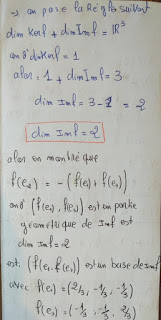 → on pave la Règle suivant
dim Kerf + dim Imf = ℝ³
on à dimKerf = 1
alor: 1 + dim Imf = 3
dim Imf = 3 - 1 = 2
dim Imf = 2
alor on montré que
f(e₂) = -(f(e₁) + f(e₃))
on à (f(e₁), f(e₃)) est un partie
génératrique de Imf est
dim Imf = 2
est: (f(e₁), f(e₃)) est un base de Imf
avec f(e₁) = (2/3, -1/3, -1/3)
f(e₃) = (-1/3, -1/3, 2/3)